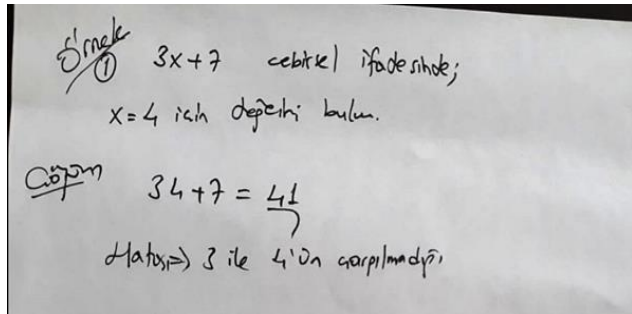 Örnek
① 3x+7 cebirsel ifadesinde;
x=4 için değerini bulun.
Çözüm
34+7 = 41
Hatası ⇒ 3 ile 4'ün çarpılmadığı